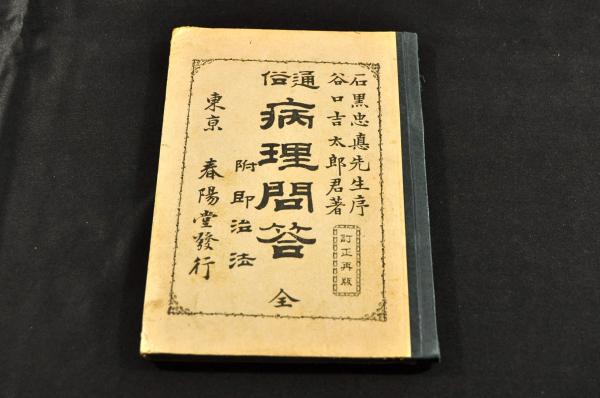 石黒忠悳先生序
谷口吉太郎君著
訂正再版
通俗
病理問答
附即治法
全
東京 春陽堂發行